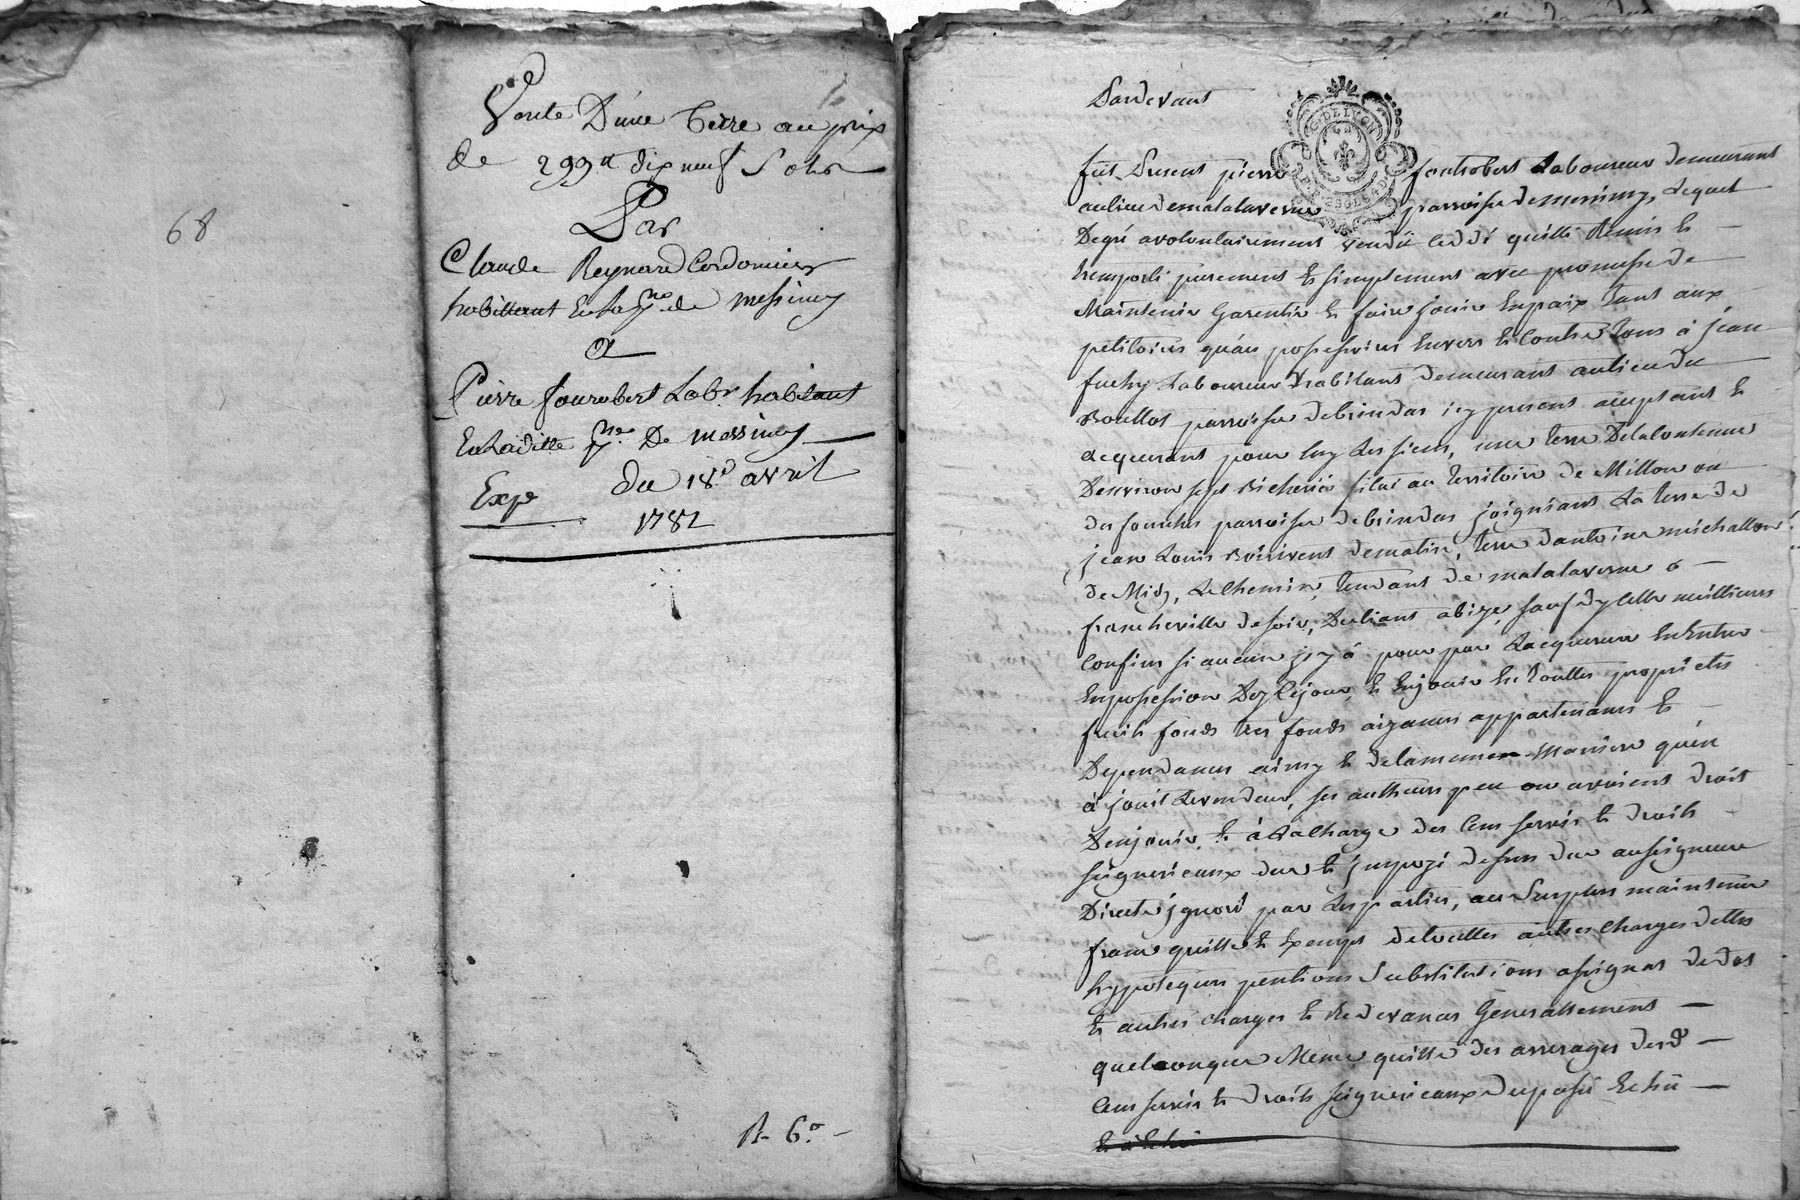 68
Vente D'une Terre au prix
de 299tt dix neuf Sols
Par
Claude Reynard Cordonnier
habittant En la psse de messimy
A
Pierre fourobert Labr habitant
En Laditte psse De messimy
Exp̄e du 18e avril
1782
R- 6.o -
Pardevant
G. DE LYON
fut Present pierre fouhobert Laboureur demeurant
au lieu de malataverne parroisse de messimy, Lequel
Degré a volontairement vendu ceddé quitté Remis et
Remporté purement et simplement avec promesse de
Maintenir Garentir et faire jouir En paix tant aux
petitoire qu'au possessoire Envers et Contre tous à jean
fuchy Laboureur habitant demeurant au lieu du
Boullot parroisse de brindas icy present acceptant et
acquerant pour luy Les siens, une terre De la Contenue
Denviron sept Bicherées situé au territoire de Millon ou
des fourches parroisse de brindas joignant La terre de
jean Louis Boirivent de matin, terre d'antoine michallon
de Midy, Le Chemin tendant de malataverne a
francheville de soir, de bize, sauf dy celle meilleurs
Confins si aucun jl y á pour par Lacquereur En Entrer
En possession Dez Cejour, et En jouir En touttes proprietes
fruits fonds tres fonds aizances appartenances et
Dependances ainsy et de la meme maniere qu'en
à jouit Le vendeur, ses autheurs peu ou avoient droit
D'en jouir, et à La Charge des Cens servis et droits
seigneuriaux dus et jmposé dessus due au seigneur
Directe jgnoré par Les parties, au Surplus maintenue
franc quitte et Exempt de touttes autres Charges dettes
hypoteques pentions Substitutions assignat de dot
et autres charges et Redevances Generallement
quelconque Meme quitte des arrerages desd
Cens servis et droits seigneuriaux du passé Echu